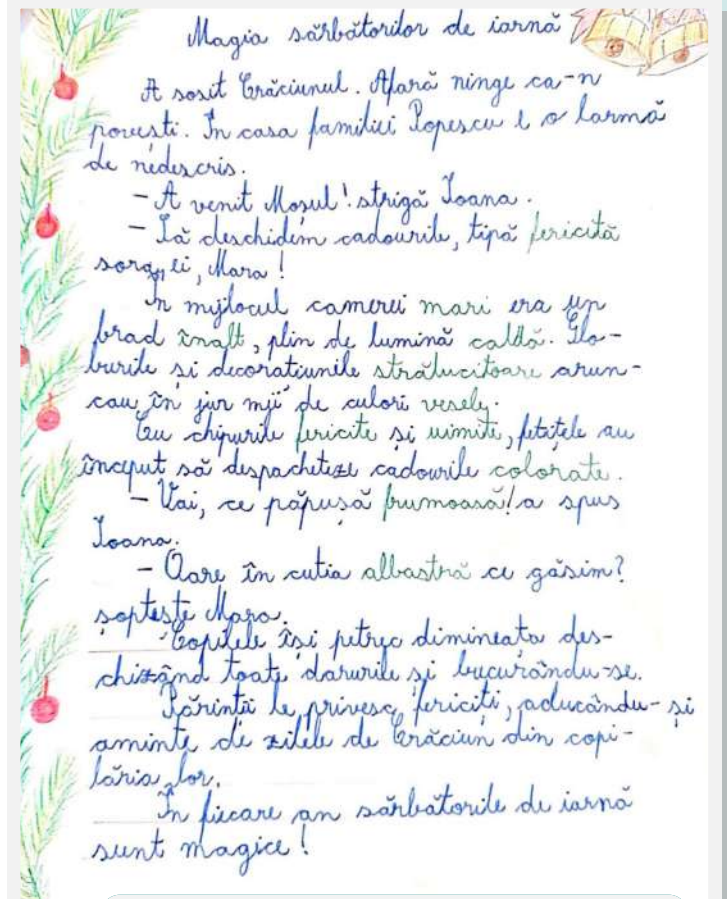 Magia sărbătorilor de iarnă
A sosit Crăciunul. Afară ninge ca-n
povești. În casa familiei Popescu e o larmă
de nedescris.
- A venit Moșul! strigă Ioana.
- Să deschidem cadourile, țipă fericită
sora ei, Mara!
În mijlocul camerei mari era un
brad înalt, plin de lumină caldă. Glo-
burile și decorațiunile strălucitoare arun-
cau în jur mii de culori vesely.
Cu chipurile fericite și uimite, fetițele au
început să despacheteze cadourile colorate.
- Vai, ce păpușă frumoasă! a spus
Ioana.
- Oare în cutia albastră ce găsim?
șoptește Mara.
Copilele își petrec dimineața des-
chizând toate darurile și bucurându-se.
Părinții le privesc fericiți, aducându-și
aminte de zilele de Crăciun din copi-
lăria lor.
În fiecare an sărbătorile de iarnă
sunt magice!